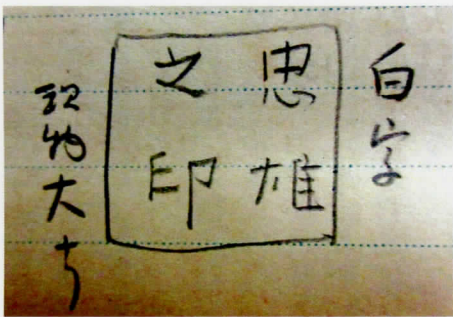 白字
忠雄
之印
現物大